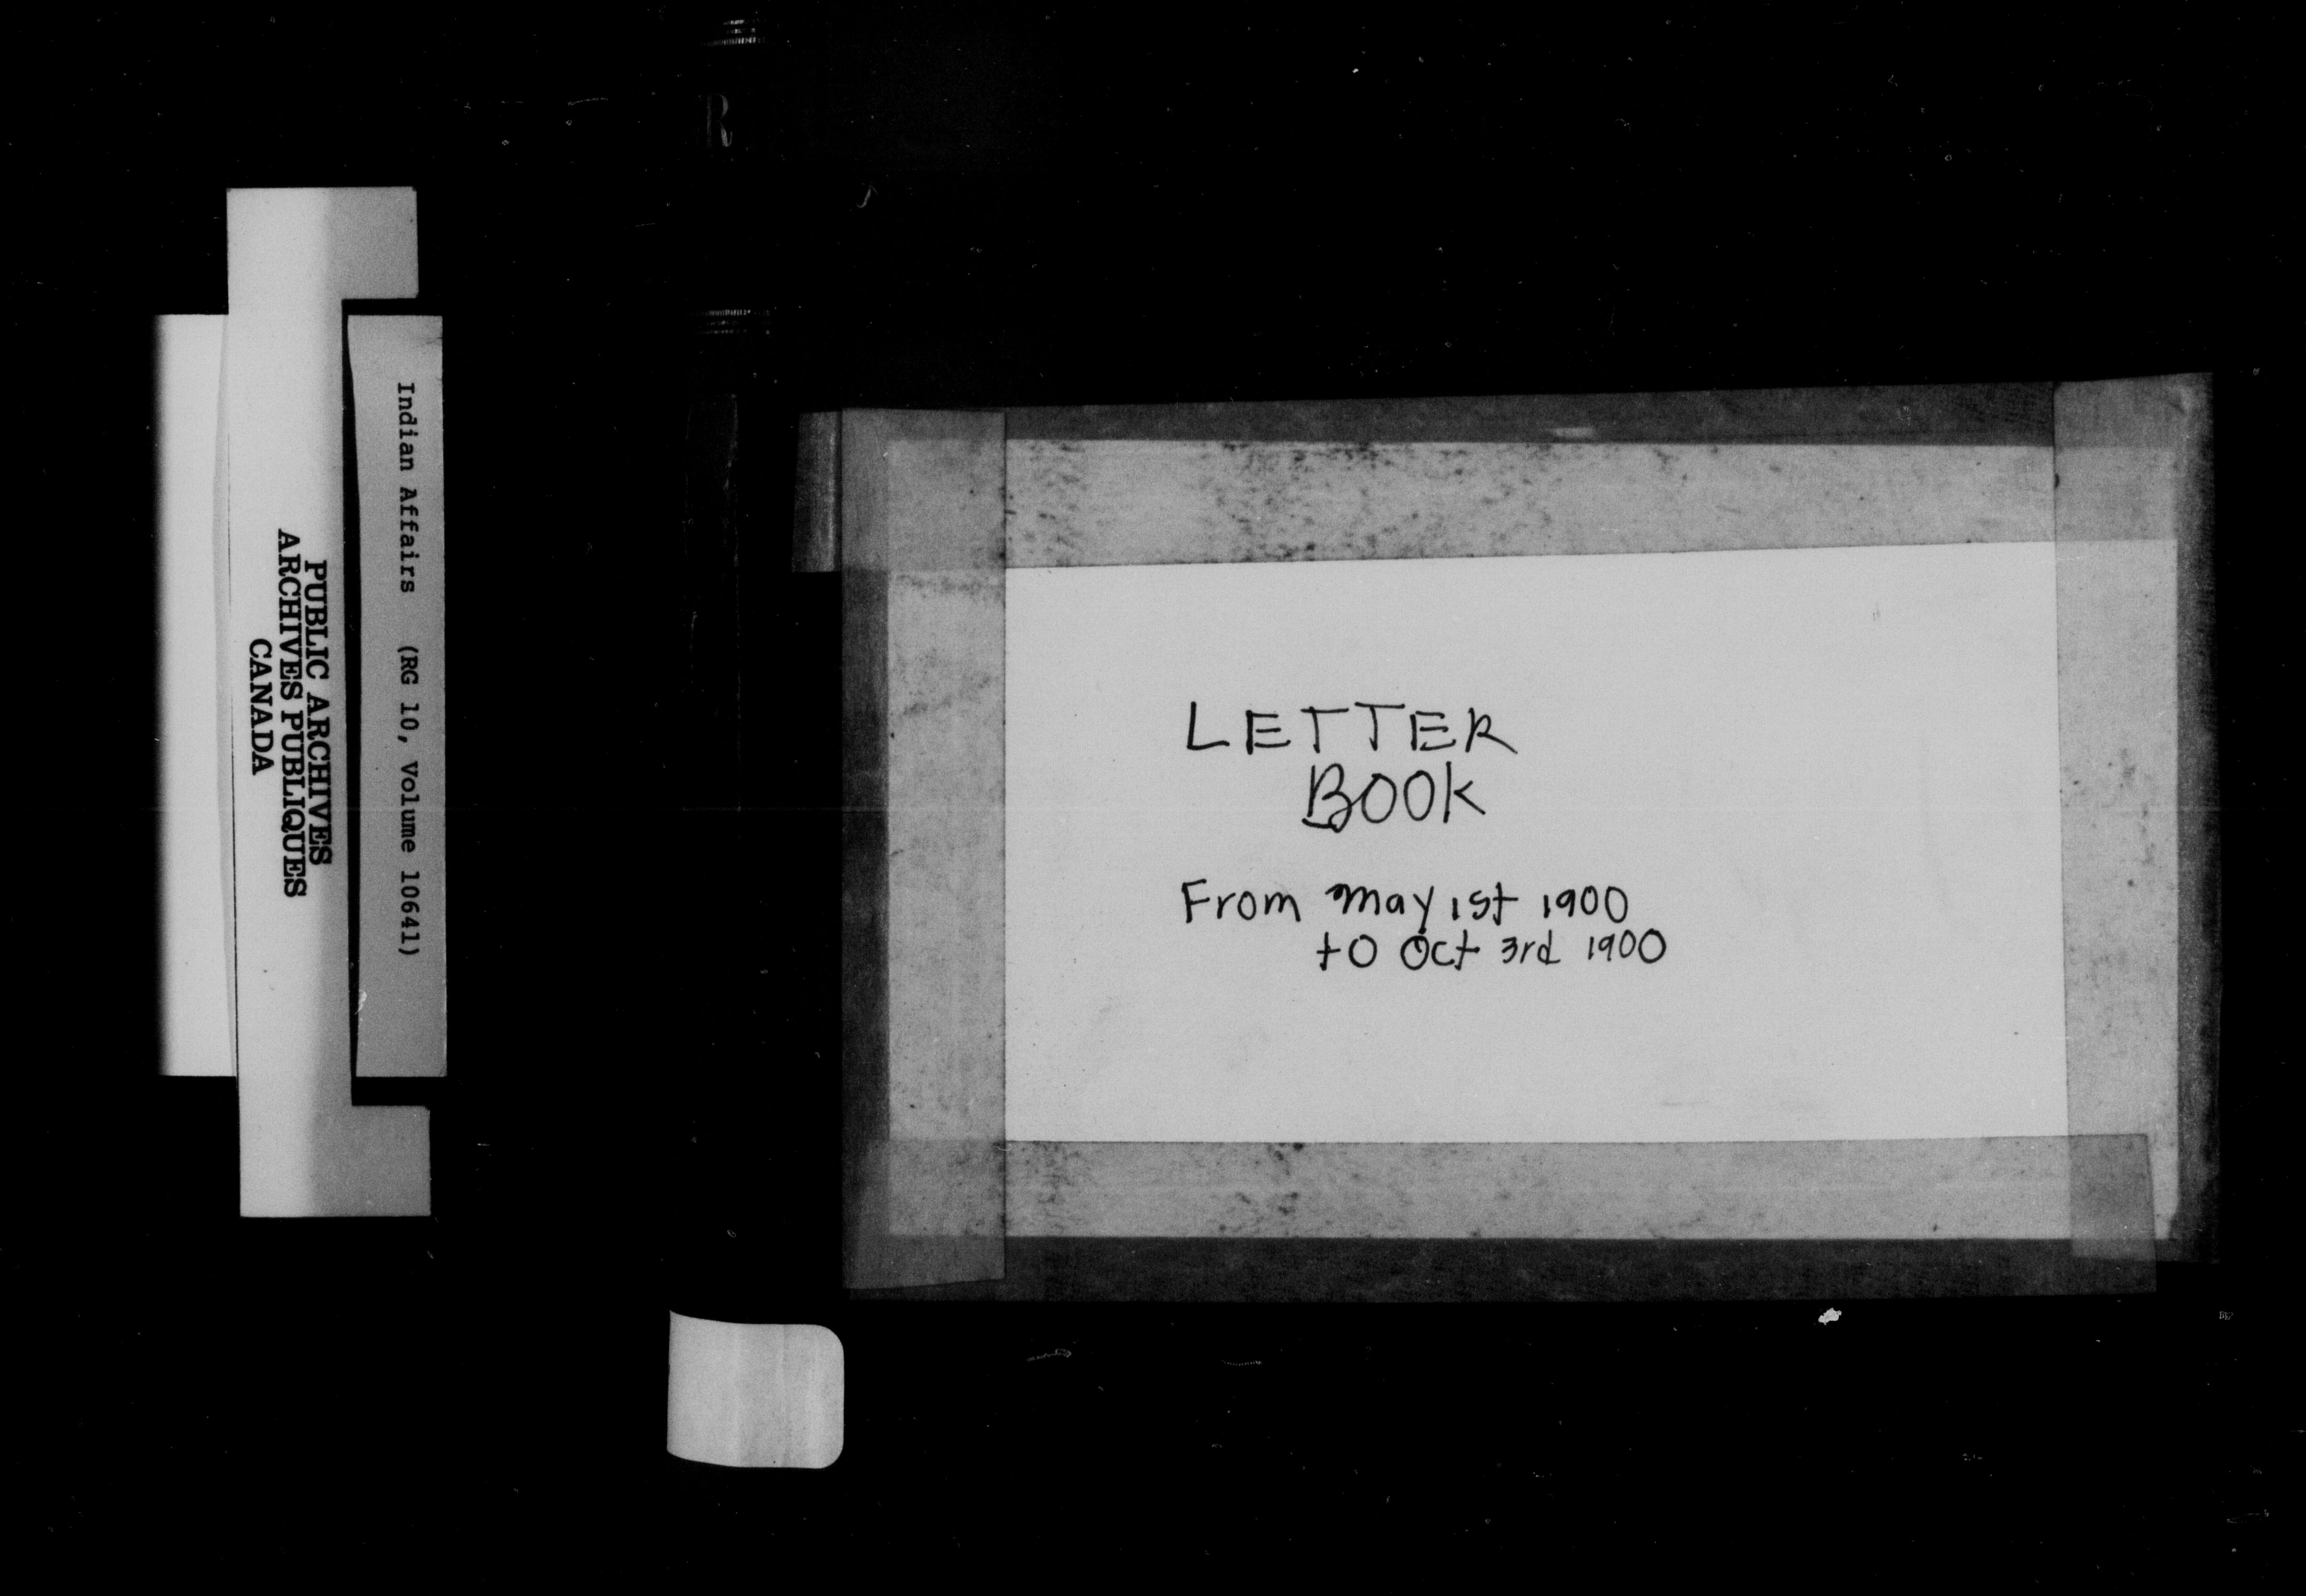 Indian Affairs (RG 10, Volume 10641)
PUBLIC ARCHIVES
ARCHIVES PUBLIQUES
CANADA
R
LETTER
BOOK
From May 1st 1900
to Oct 3rd 1900